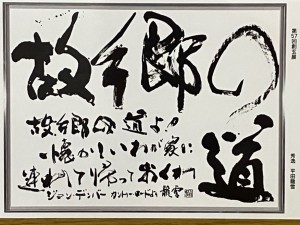 故郷の道
故郷の道よ!!
懐かしいわが家に
連れて帰っておくれ
ジョン・デンバー カントリーロードより 龍雲
第57回創玉展
秀逸 平田龍雲